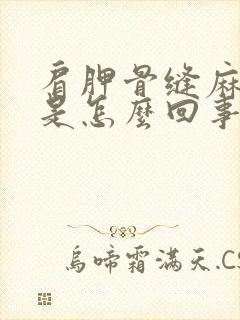 肩胛骨缝麻
是怎麽回事
烏啼霜滿天.CS